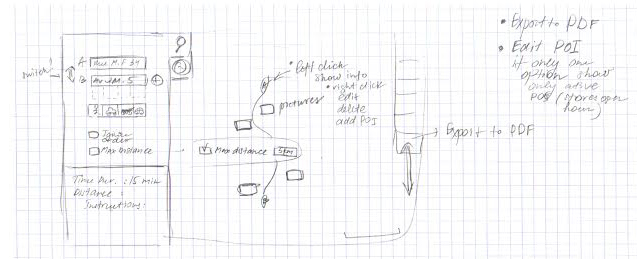 switch!
A Ave M.F 34
B Ave M. 5
Ignore
order
Max Distance
Time Aver. : 15 min
Distance :
Instructions:
• left click
show info
• right click
edit
delete
add POI
pictures
Max distance 5km
→ Export to PDF
• Export to PDF
• Edit POI
if only one
option show
only active
POI (store open
hour)